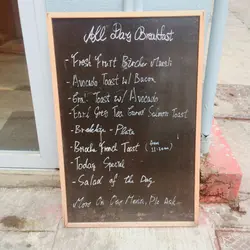 All Day Breakfast
- Fresh Fruit Bircher Muesli
- Avocado Toast w/ Bacon
- Toast w/ Avocado
- Earl Grey Tea Cured Salmon Toast
- Breakky - Plate
- Brioche French Toast (
11:30am)
- Today Special
- Salad of the Day
More On Our Menu, Plz Ask